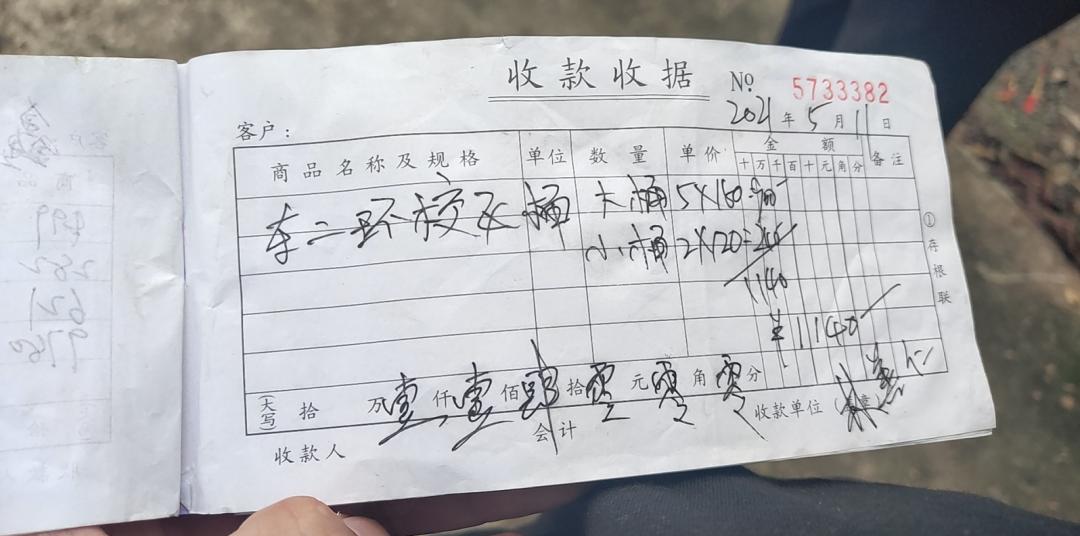 收款收据
№ 5733382
2021年5月11日
客户:
商品名称及规格 单位 数量 单价 金额 备注
十万千百十元角分
东二环 桶 大桶 5X180=900
小桶 2X120=240
1140
¥1140
(大写) 拾 万壹仟壹佰肆拾零元零角零分
收款单位(盖章)
收款人 会计
①存根联